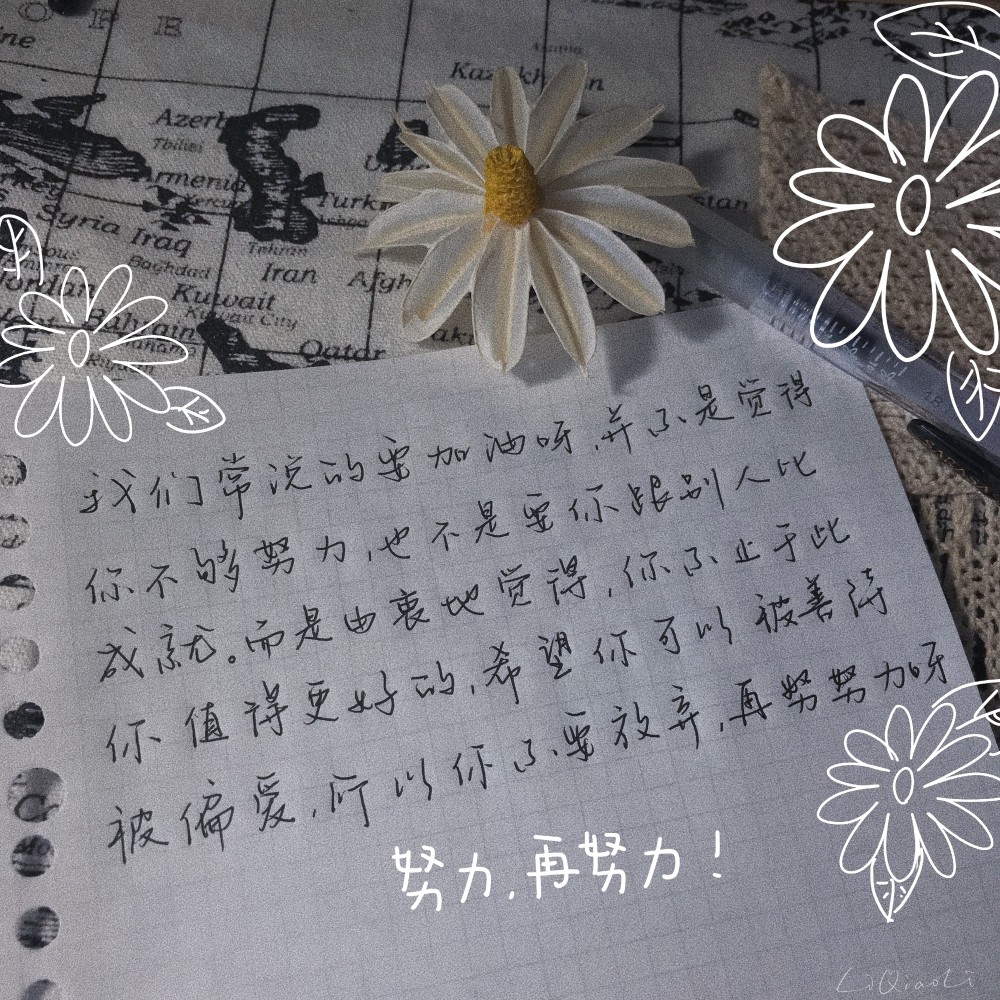 O P E
ine
Asiana
Kazakhstan
Azerb
Tbilisi
Armenia
Turkm
stan
Syria Iraq
Baghdad
Tehran
Iran
Afgh
Jordan
Kuwait
Kuwait City
Bahrain
Qatar
Pak
我们常说的要加油呀，并不是觉得
你不够努力，也不是要你跟别人比
成就。而是由衷地觉得，你不止于此
你值得更好的，希望你可以被善待
被偏爱，所以你不要放弃，再努努力呀
努力，再努力！
LiQiaoLi